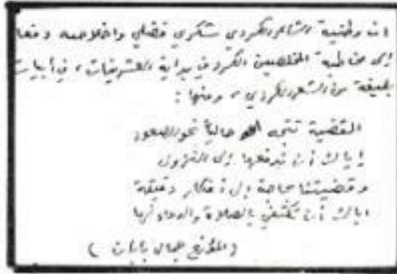 ان وطنية الشاعر الكردي شكري فضلي واخلاصه دفعا
إلى مخاطبة المخلصين الكرد في بداية العشرينات، في أبيات
بليغة من الشعر الكردي، ومنها:
القضية تتجه حالياً نحو الصعود
إياك أن تدفعها إلى النزول
وقضيتنا بحاجة إلى أفكار دقيقة
اياك أن تكتفي بالصلاة والدعاء لها
(المؤرخ جمال بابان)